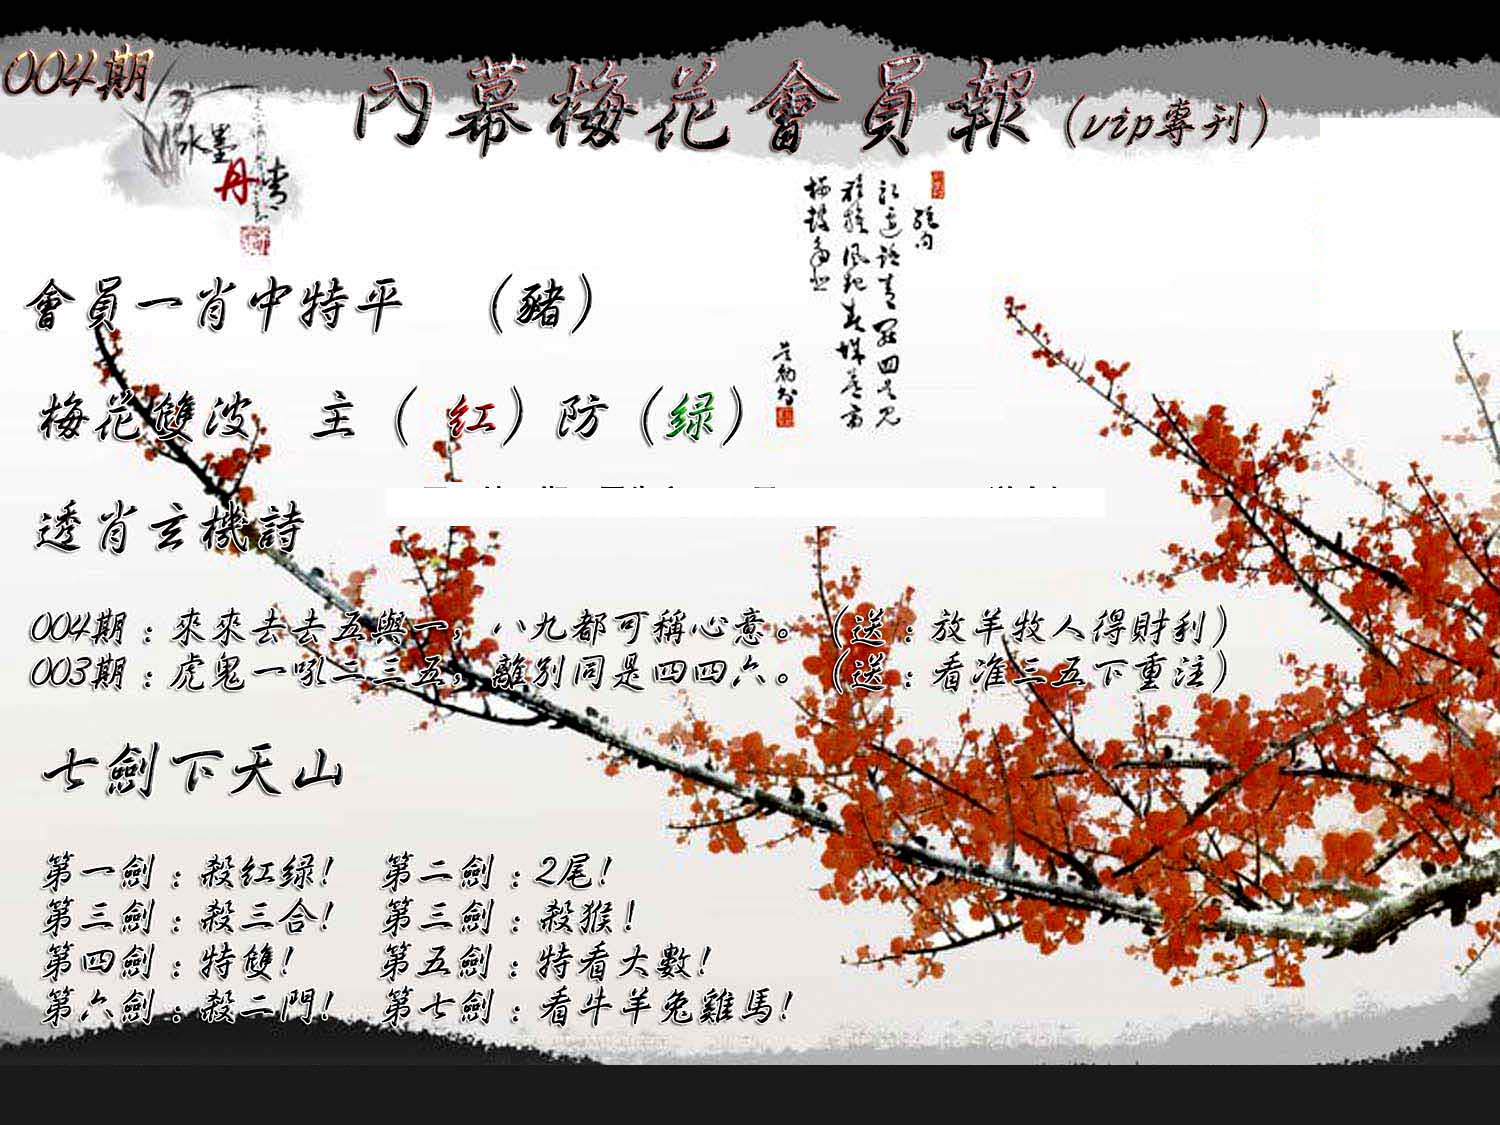 004期
內幕梅花會員報(vip專刊)
水墨
丹青
絕句
會員一肖中特平 (豬)
梅花雙波 主(紅)防(绿)
透肖玄機詩
004期:來來去去五與一,八九都可稱心意。(送:放羊牧人得財利)
003期:虎鬼一吼二三五,離別同是四四六。(送:看准三五下重注)
七劍下天山
第一劍:殺紅绿! 第二劍:2尾!
第三劍:殺三合! 第三劍:殺猴!
第四劍:特雙! 第五劍:特看大數!
第六劍:殺二門! 第七劍:看牛羊兔雞馬!